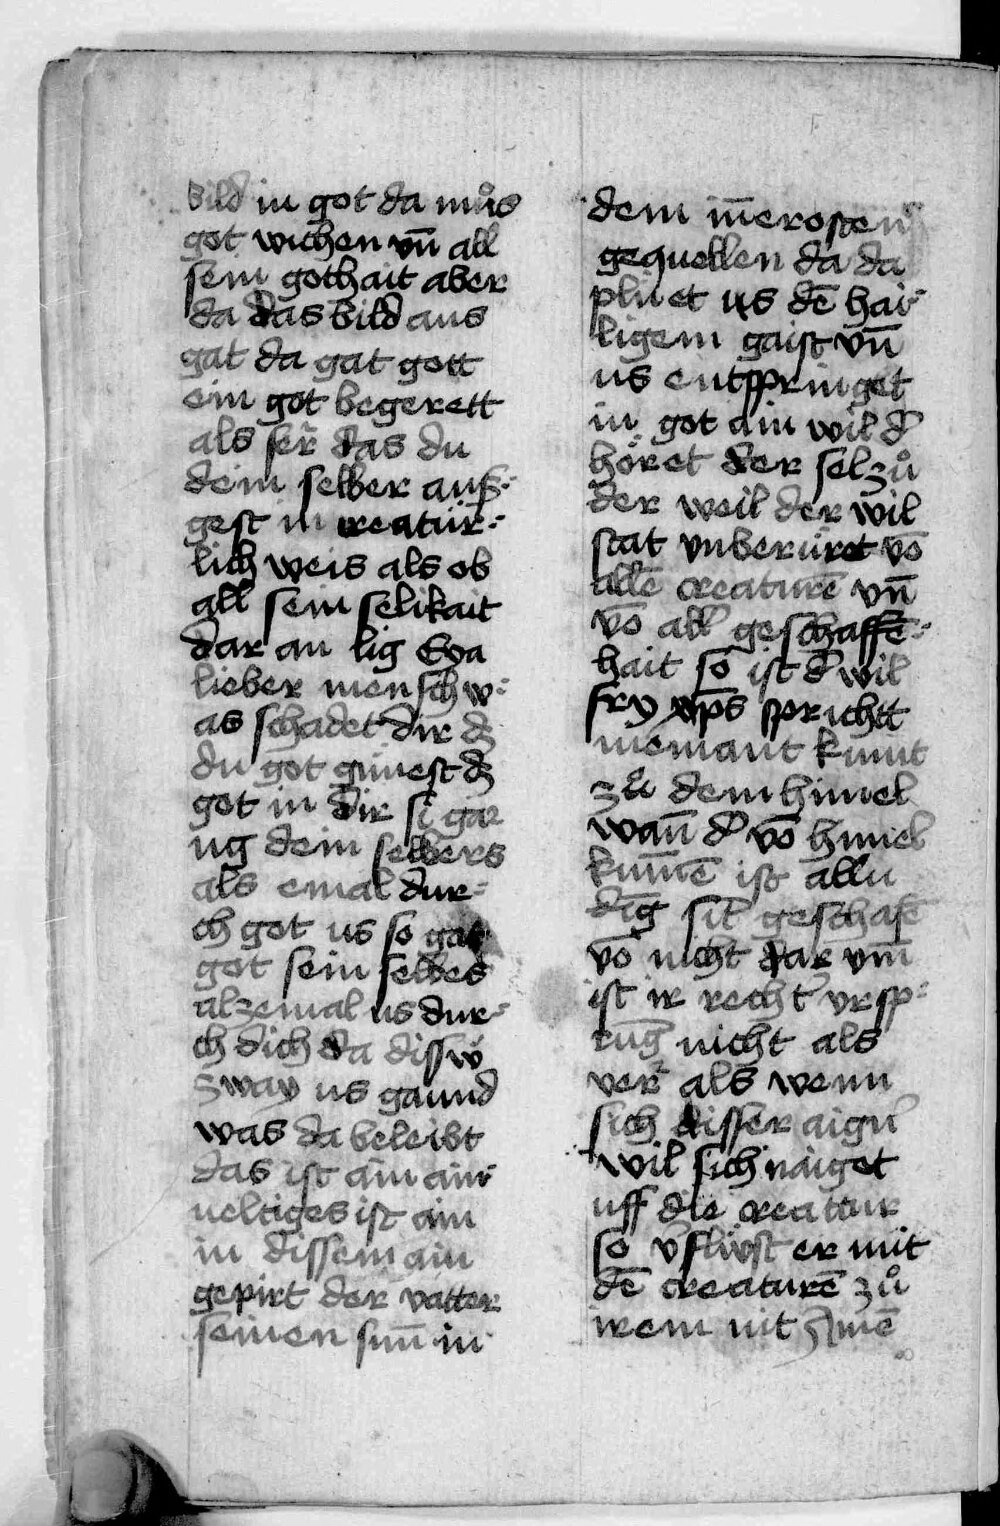 Bild in got da muͦs
got wichen vn̄ all
sein gothait aber
da das bild aus
gat da gat gott
ein got begerett
als ser̄ das du
dein selber aus⸗
gest in creatür⸗
lich weis als ob
all sein selikait
dar an lig Eya
lieber mensch w⸗
as schadet dir dz
du got gúnest dz
got in dir si gar
ug dein selbers
als emal dur⸗
ch got us so gat
got sein selbes
alzemal us dur⸗
ch dich da diss
zway us gaund
was da beleibt
das ist ain ain
ueltiges ist ain
in dissem ain
gepirt der vatter
seinen sun̄ in
dem in̄erosten
gequellen da da
plúet us dē hai⸗
ligem gaist vn̄
us entspringet
in got ain wil d̓
höret der sel zuͦ
der weil der wil
stat vnberüret vō
allē creaturē vn̄
vō all geschaffē⸗
hait so ist d̓ wil
fry xp̄s sprichtt
niemant kumt
zuͦ dem himel
wan̄ d̓ vō himel
kum̄ē ist allu
dīg sīt geschafē
vō nicht dar vm̄
ist ir recht̓ vrsp⸗
rūg nicht als
ver̄ als wenn
sich disser aign̓
wil sich naiget
uff die creattur
so v̓flüst er mit
dē creaturē zuͦ
irem nit